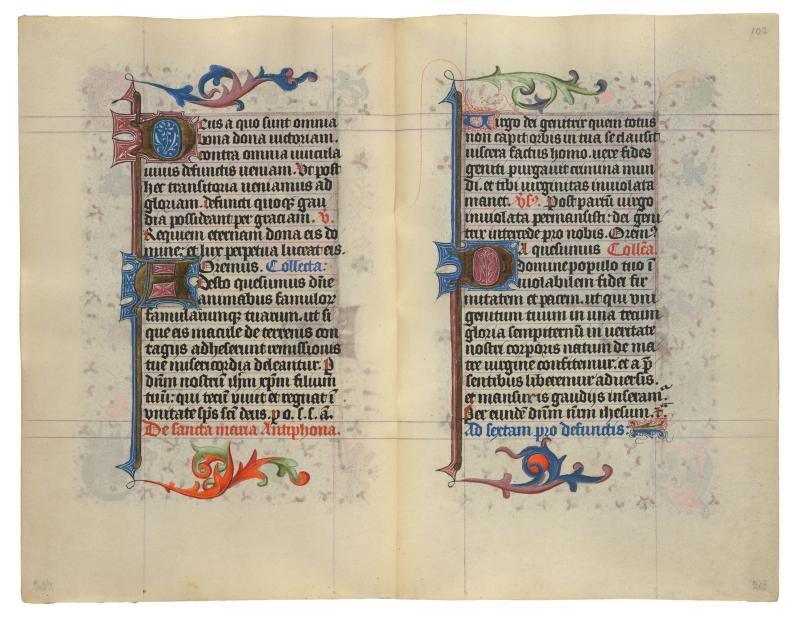 Deus a quo sunt omnia
bona dona uictoriam.
contra omnia uincula
huius defunctis ueniam. Vt post
hec transitoria ueniamus ad
gloriam. defuncti quoqꝫ gau
dia possideant per graciam. V.
Requiem eternam dona eis do
mine: et lux perpetua luceat eis.
Oremus. Collecta:
Adesto quesumus dn̄e
animabus famulor
famularumqꝫ tuarum. ut si
que eis macule de terrenis con
tagijs adheserunt remissionis
tue misericordia deleantur. P
dn̄m nostrū ih̄m xp̄m filium
tuū: qui tecū viuit et regnat ī
vnitate sp̄s sc̄i deus. p o. s. s. a.
De sancta maria Antiphona.
102
Uirgo dei genitrix quem totus
non capit orbis in tua se clausit
uiscera factus homo. uere fides
geniti purgauit crimina mun
di. et tibi uirginitas inuiolata
manet. Vs. Post partū uirgo
inuiolata permansisti: dei geni
trix intercede pro nobis. Orem
Da quesumus Collc̄a.
domine populo tuo ī
uiolabilem fidei fir
mitatem et pacem. ut qui vni
genitum tuum in una tecum
gloria sempiternū in ueritate
nostri corporis natum de ma
tre uirgine confitemur. et a p̄
sentibus liberemur aduersis.
et mansuris gaudijs inseram
Per eundē dn̄m nr̄m ihesum. x
Ad sextam pro defunctis: